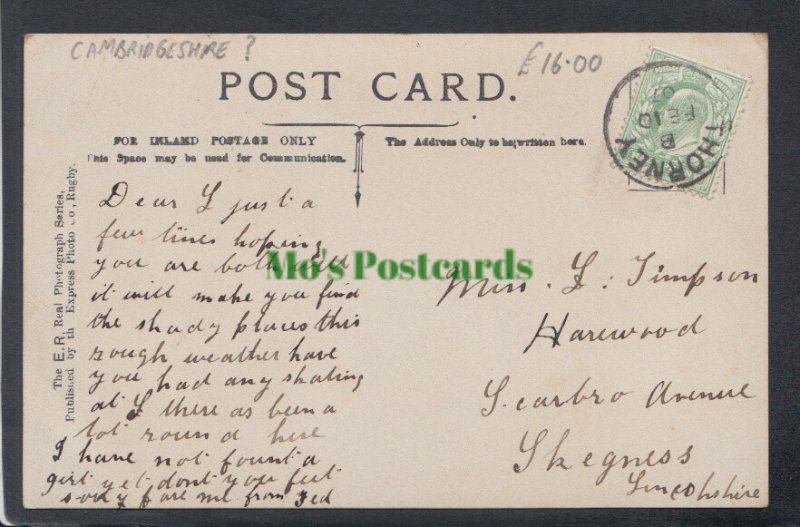 CAMBRIDGESHIRE ?
£16.00
POST CARD.
FOR INLAND POSTAGE ONLY
This Space may be used for Communication.
The Address Only to be written here.
THORNEY
B
FE 10
07
The E.R. Real Photograph Series,
Published by th Express Photo Co, Rugby.
Dear L just a
few lines hoping
you are both well
it will make you find
the shady places this
rough weather have
you had any skating
at S there as been a
lot round here
I have not found a
girl yet dont you feel
sorry for me from Ted
Mo's Postcards
Miss. L. Timpson
Harewood
Scarbro Avenue
Skegness
Lincolnshire